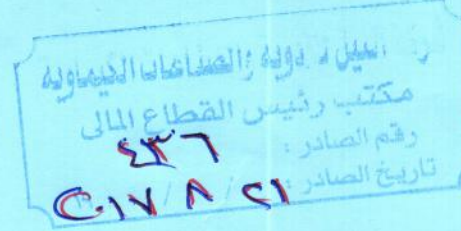 النيل للأدوية والصناعات الكيماوية
مكتب رئيس القطاع المالى
رقم الصادر : ٤٣٦
تاريخ الصادر : ٢١ / ٨ / ٢٠١٧